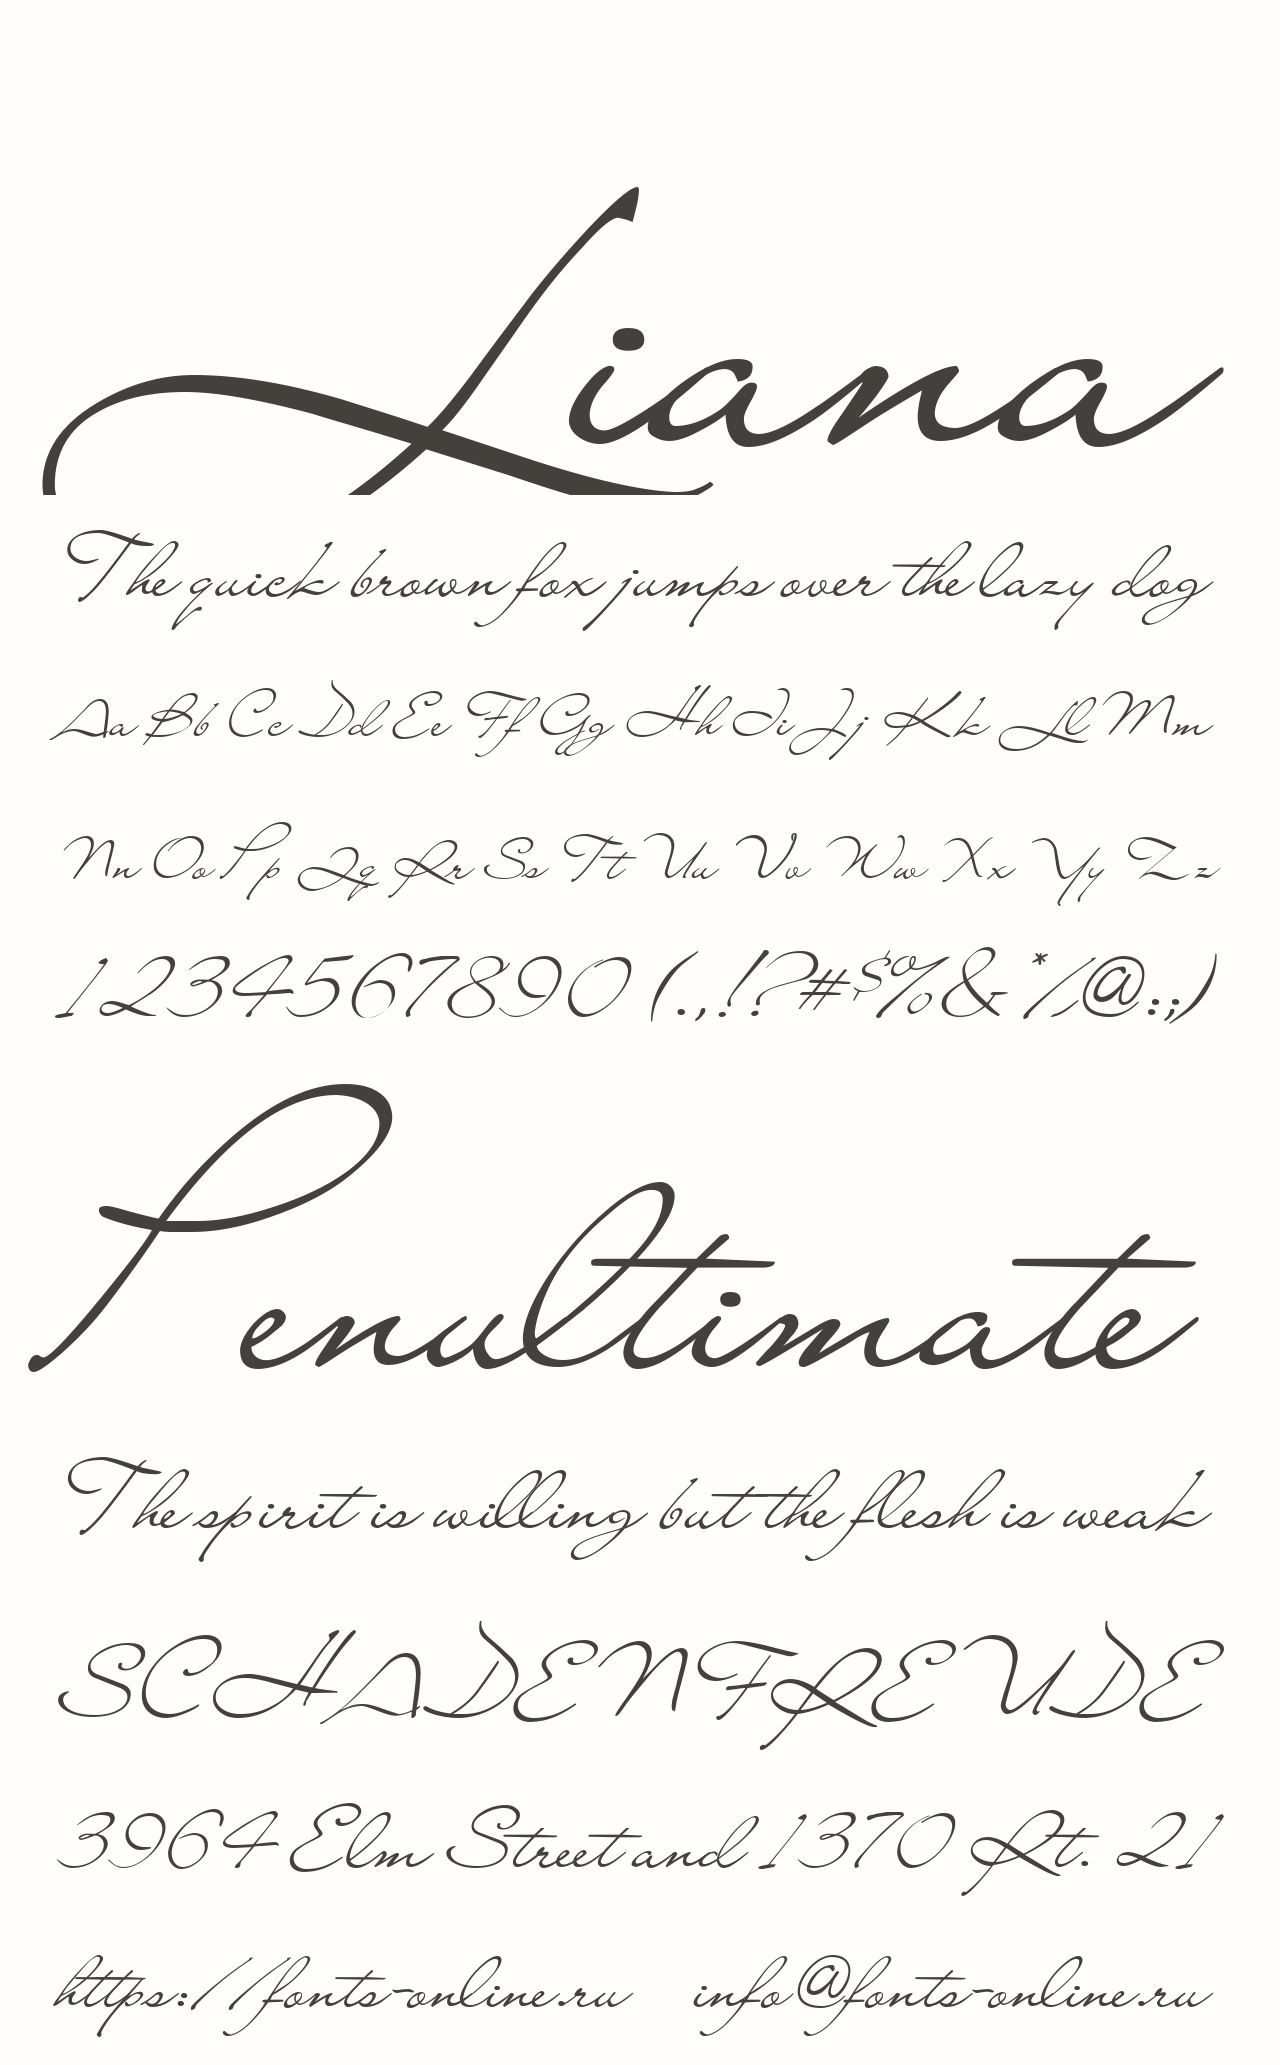 Liana
The quick brown fox jumps over the lazy dog
Aa Bb Cc Dd Ee Ff Gg Hh Ii Jj Kk Ll Mm
Nn Oo Pp Qq Rr Ss Tt Uu Vv Ww Xx Yy Zz
1234567890 (.,!?#$%& */@:;)
Penultimate
The spirit is willing but the flesh is weak
SCHADENFREUDE
3964 Elm Street and 1370 Rt. 21
https://fonts-online.ru info@fonts-online.ru